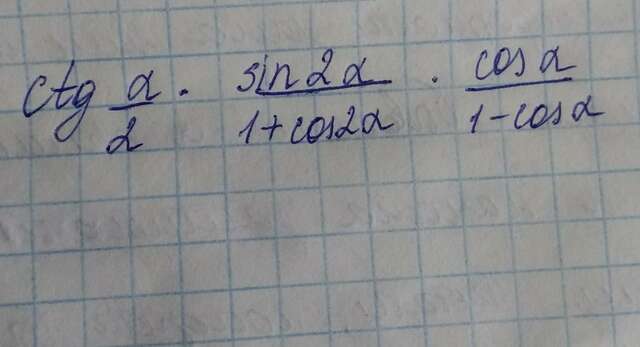 ctg α/2 · sin2α/1+cos2α · cosα/1-cosα